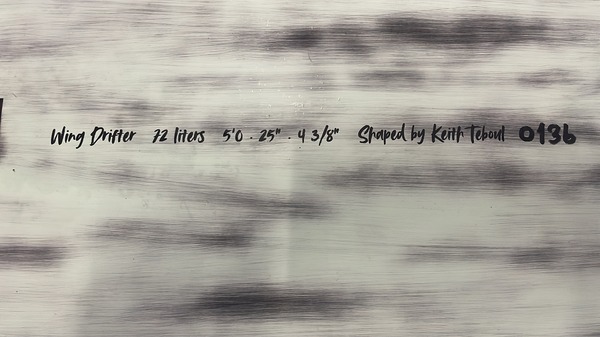 Wing Drifter 72 liters 5'0 · 25" · 4 3/8" Shaped by Keith Teboul 0136